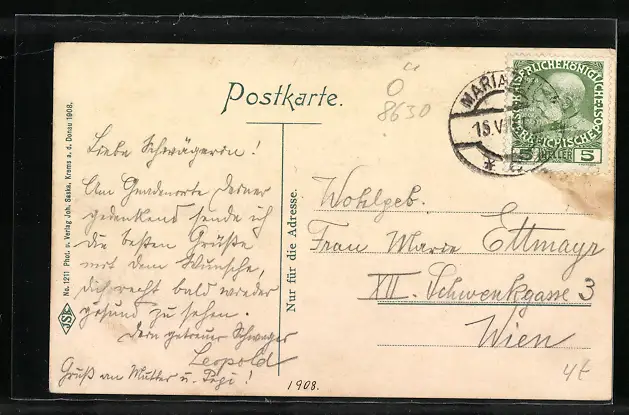 Postkarte.
O
8630
MARIAZ
18.VI
KAISERLICHEKÖNIGLICHE
ÖSTERREICHISCHE POST
5 HELLER 5
Liebe Schwägerin!
Am Gnadenorte Deiner
gedenkend sende ich
die besten Grüße
mit dem Wunsche,
dich recht bald wieder
gesund zu sehen.
Dein getreuer Schwager
Leopold
Gruß an Mutter u. Pepi!
No. 1211 Phot. u. Verlag Joh. Saska, Krems a. d. Donau 1908.
JSK
Nur für die Adresse.
Wohlgeb.
Frau Marie Ettmayr
XII. Schwenkgasse 3
Wien
1908.